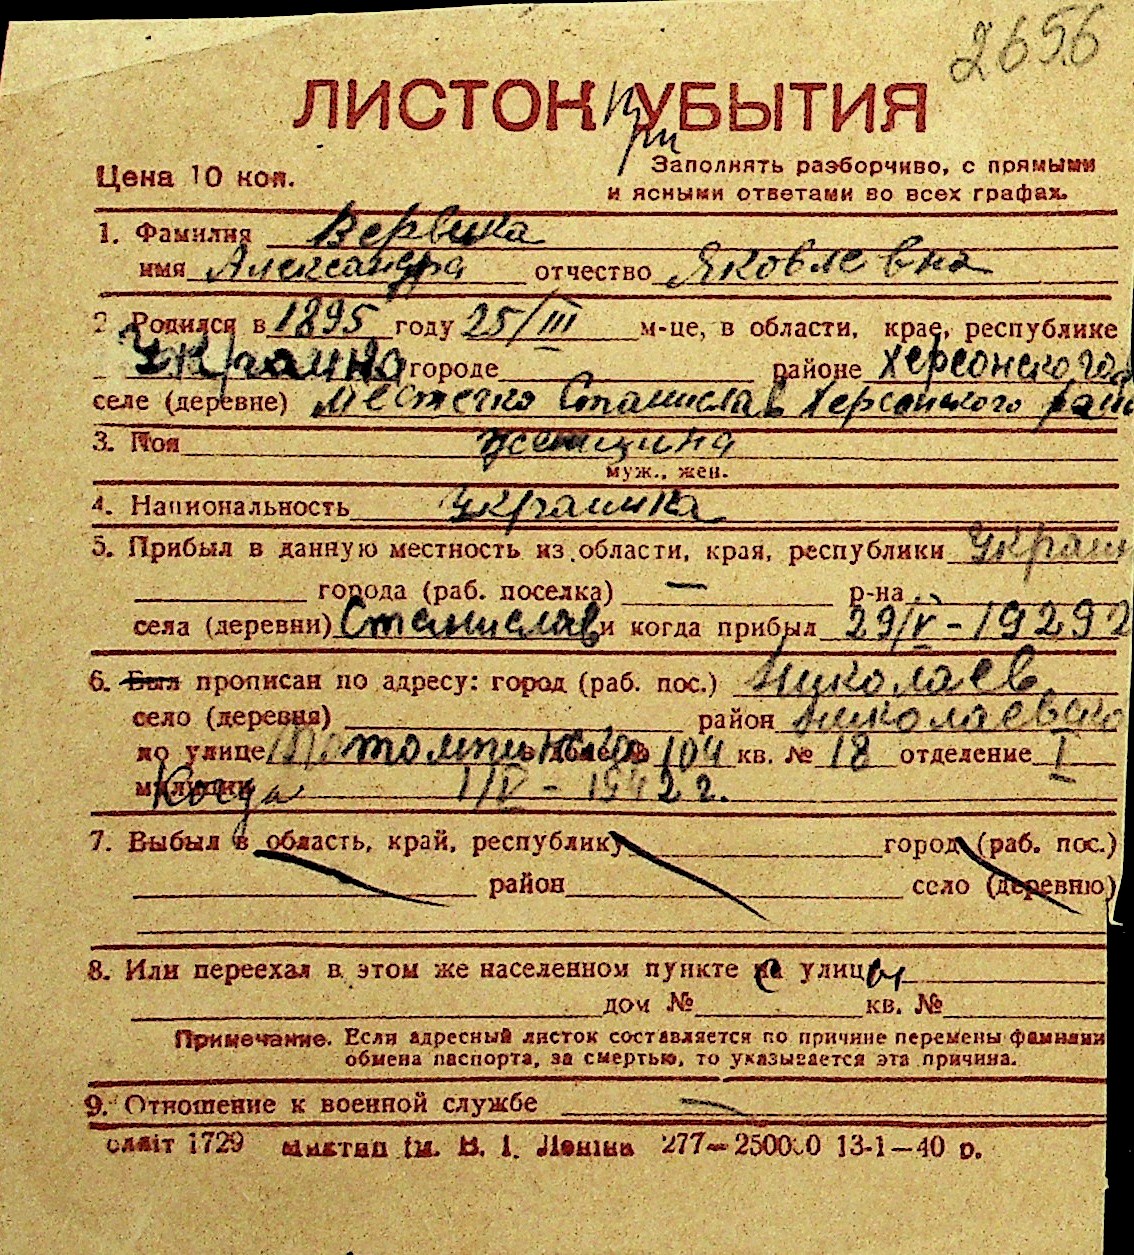 2656
ЛИСТОК при УБЫТИЯ
Цена 10 коп.
Заполнять разборчиво, с прямыми
и ясными ответами во всех графах.
1. Фамилия Вервика
имя Александра отчество Яковлевна
2. Родился в 1895 году 25/III м-це, в области, крае, республике
Украина городе районе Херсонского
селе (деревне) местечко Станислав Херсонского рай
3. Пол женщина
муж., жен.
4. Национальность Украинка
5. Прибыл в данную местность из области, края, республики Украин
города (раб. поселка) — р-на
села (деревни) Станислав и когда прибыл 29/IV - 1929 г
6. Был прописан по адресу: город (раб. пос.) Николаев
село (деревня) район Николаевско
по улице 104 кв. № 18 отделение I
милиции Когда 1/V - 1942 г.
7. Выбыл в область, край, республику город (раб. пос.)
район село (деревню)
8. Или переехал в этом же населенном пункте с улицы
дом № кв. №
Примечание. Если адресный листок составляется по причине перемены фамилии
обмена паспорта, за смертью, то указывается эта причина.
9. Отношение к военной службе —
1729 ім. В. І. Леніна 277—250000 13-1—40 р.